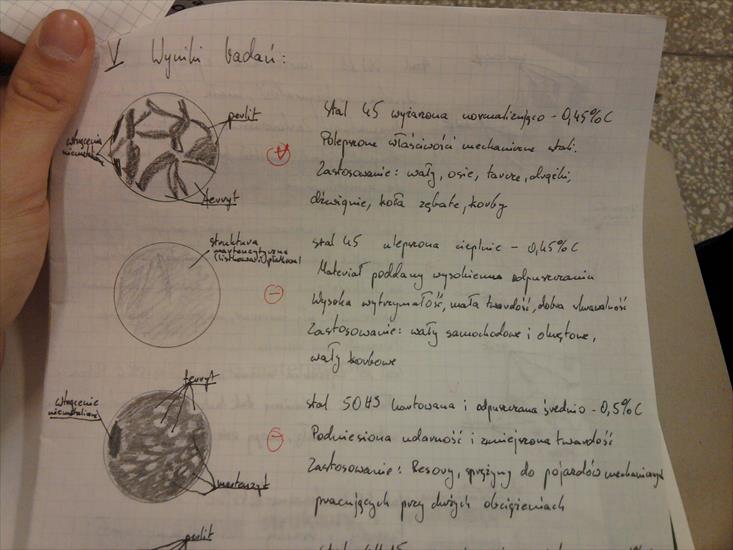 V Wyniki badań:
perlit
wtrącenia
niemetaliczne
ferryt
stal 45 wyżarzona normalizująco - 0,45%C
Polepszone właściwości mechaniczne stali.
Zastosowanie: wały, osie, tarcze, drążki,
dźwignie, koła zębate, korby
struktura
martenzytyczna
(listkowa
stal 45 ulepszona cieplnie - 0,45%C
Materiał poddany wysokiemu odpuszczaniu
Wysoka wytrzymałość, mała twardość, dobra skrawalność
Zastosowanie: wały samochodowe i okrętowe,
wały korbowe
ferryt
wtrącenie
niemetaliczne
martenzyt
stal 50HS hartowana i odpuszczana średnio - 0,5%C
Podniesiona udarność i zmniejszona twardość
Zastosowanie: Resory, sprężyny do pojazdów mechanicznych
pracujących przy dużych obciążeniach
perlit
stal